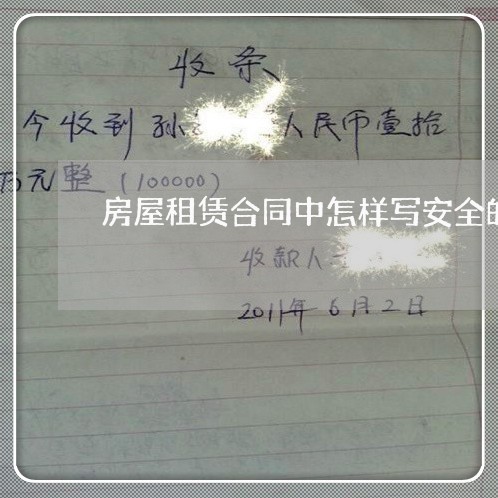 收条
今收到孙 人民币壹拾
万元整(100000)
房屋租赁合同中怎样写安全的
收款人
2011年6月2日